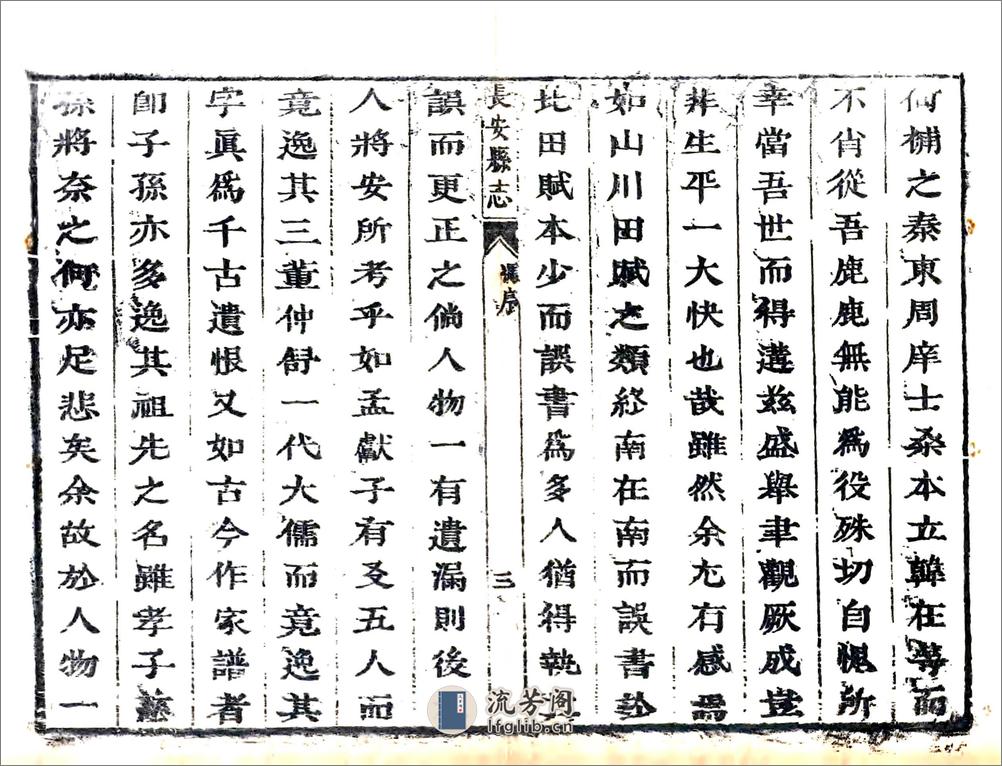 何補之秦東周庠士桑本立韓在等而
不肖從吾鹿鹿無能爲役殊切自愧所
幸當吾世而得遘兹盛舉聿觀厥成豈
非生平一大快也哉雖然余尤有感焉
如山川田賦之類終南在南而誤書於
北田賦本少而誤書爲多人猶得執
長安縣志
馮序
三
誤而更正之倘人物一有遺漏則後
人將安所考乎如孟獻子有友五人而
竟逸其三董仲舒一代大儒而竟逸其
字眞爲千古遺恨又如古今作家譜者
卽子孫亦多逸其祖先之名雖孝子慈
孫將奈之何亦足悲矣余故於人物一
流芳阁
lfglib.cn